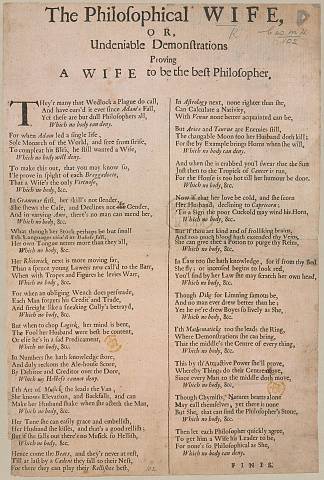 The Philosophical WIFE,
OR,
Undeniable Demonstrations
Proving
A WIFE to be the best Philosopher.
They're many that Wedlock a Plague do call,
And have curs'd it ever since Adam's Fall,
Yet these are but dull Philosophers all,
Which no body can deny.
For when Adam led a single life,
Sole Monarch of the World, and free from strife,
To compleat his Bliss, he still wanted a Wife,
Which no body will deny.
To make this out, that you may know it,
I'le prove in spight of each Braggadocio,
That a Wife's the only Virtuoso,
Which no body, &c.
In Grammar first, her skill's not slender,
She shews the Case, and Declines not the Gender,
And in moving Anger, there's no man can mend her,
Which no body, &c.
What though her Stock perhaps be but small
Her own Tongue serves more than they all,
Which no body, &c.
Her Rhetorick, next is more moving far,
Than a spruce young Lawyers new call'd to the Barr,
When with Tropes and Figures he levies Warr,
Which no body, &c.
For when an obliging Wench does perswade,
Each Man forgets his Credit and Trade,
And streight like a sneaking Cully's betray'd,
Which no body, &c.
But when to chop Logick, her mind is bent,
The Fool her Husband were best be content,
Or else he's in a sad Predicament,
Which no body, &c.
In Numbers she hath knowledge store,
And duly reckons the Ale-house Score,
By Debitor and Creditor over the Door,
Which no body cannot deny.
In th' Art of Musick she leads the Van,
She knows Elevation, and Backfalls, and can
Make her Husband shake when she asketh the Man,
Which no body, &c.
Her Tune she can easily grace and embellish,
Her Husband she kisses, and that's a good rellish;
But if she falls out there's no Musick so Hellish,
Which no body, &c.
Hence come the Beaux, and they're never at rest,
Till at last by a Cadent they fall to their Nest,
For there they can play their Rellishes best,
In Astrology next, none righter than she,
Can Calculate a Nativity,
With Venus none better acquainted can be,
Which no body, &c.
But Aries and Taurus are Enemies still,
The changable Moon too her Husband doth kill;
For she by Example brings Horns when she will,
Which no body can deny.
And when she is crabbed you'l swear that the Sun
Just then to the Tropick of Cancer is run,
For the House is too hot till her humour be done.
Which no body, &c.
Now if that her love be cold, and she scorn
Her Husband, declining to Capricorn;
'Tis a Sign the poor Cuckold may wind his Horn,
Which no body, &c.
But if they are kind and of frolicking brains,
And too much blood hath extended the Veins,
She can give thee a Potion to purge thy Reins,
Which no body, &c.
In Law too she hath knowledge, for if from thy Bed
She fly, or uncivil begins to look red,
You'l find by her Law she may scratch her own head,
Which no body, &c.
Though Dido for Limning famous be,
And no man ever drew better than he;
Yet he ne're drew Boyes so lively as She,
Which no body, &c.
I'th Mathematicks too she leads the Ring,
Where Demonstrations she can bring,
That the middle's the Center of every thing,
Which no body, &c.
This by th'Attractive Power she'll prove,
Whereby Things do their Centre move,
Since every Man to the middle doth move,
Which no body, &c.
Though Chymists, Natures hearts alone
May call themselves, yet there is none
But She, that can find the Philosopher's Stone,
Which no body, &c.
Then let each Philosopher quickly agree,
To get him a Wife his Leader to be,
For none's so Philosophical as She,
Which no body can deny.
FINIS.